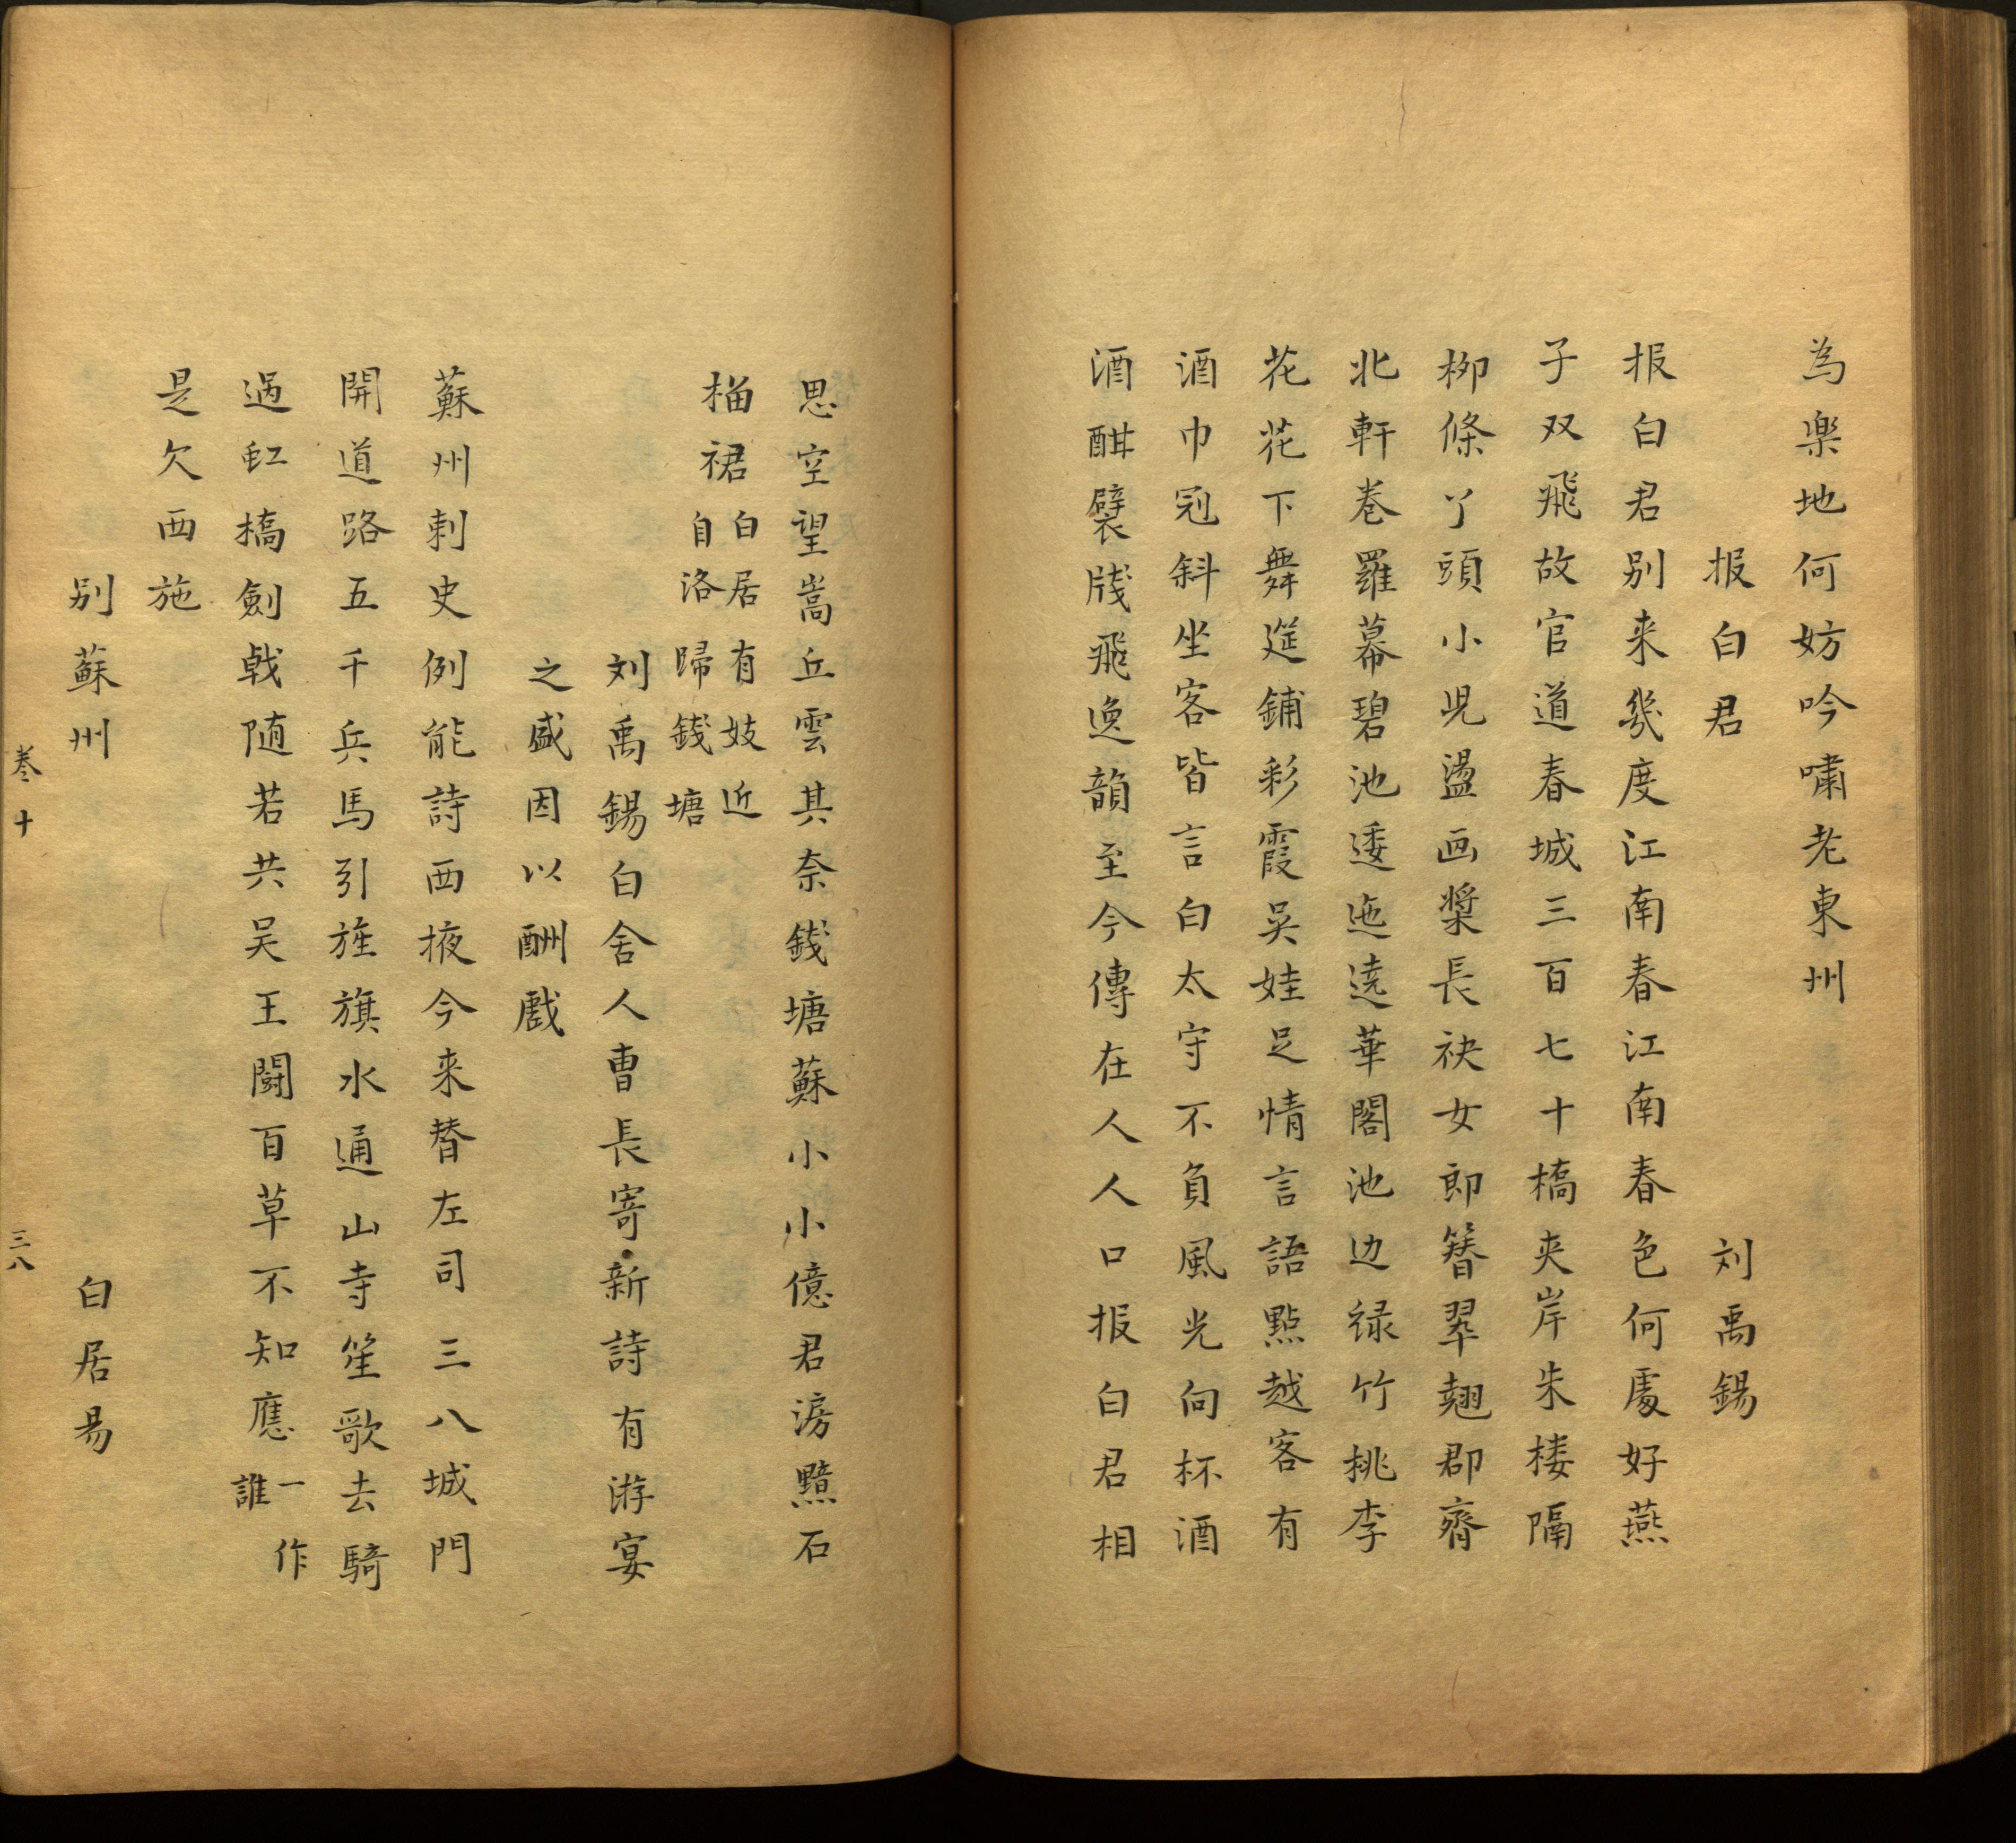 為楽地何妨吟嘯老東州
报白君 刘禹錫
报白君别来幾度江南春江南春色何處好燕
子双飛故官道春城三百七十橋夹岸朱楼隔
柳條丫頭小児盪画槳長袂女郎簪翠翹郡齊
北軒卷羅幕碧池逶迤遶華閣池边緑竹桃李
花花下舞筵鋪彩霞吴娃足情言語黠越客有
酒巾冠斜坐客皆言白太守不負風光向杯酒
酒酣襞牋飛逸韻至今傳在人人口报白君相
思空望嵩丘雲其奈錢塘蘇小小億君淚黯石
榴裙 白居有妓近
自洛歸錢塘
刘禹錫白舍人曹長寄新詩有游宴
之盛因以酬戲
蘇州刺史例能詩西掖今来替左司三八城門
開道路五千兵馬引旌旗水通山寺笙歌去騎
過虹橋劍戟随若共吴王鬪百草不知應 一作
誰
是欠西施
别蘇州 白居易
卷十 三八